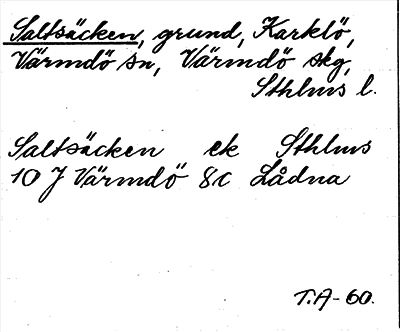 Saltsäcken, grund, Karklö,
Värmdö sn, Värmdö skg,
Sthlms l.
Saltsäcken ek Sthlms
10 J Värmdö 8c Lådna
T.A-60.